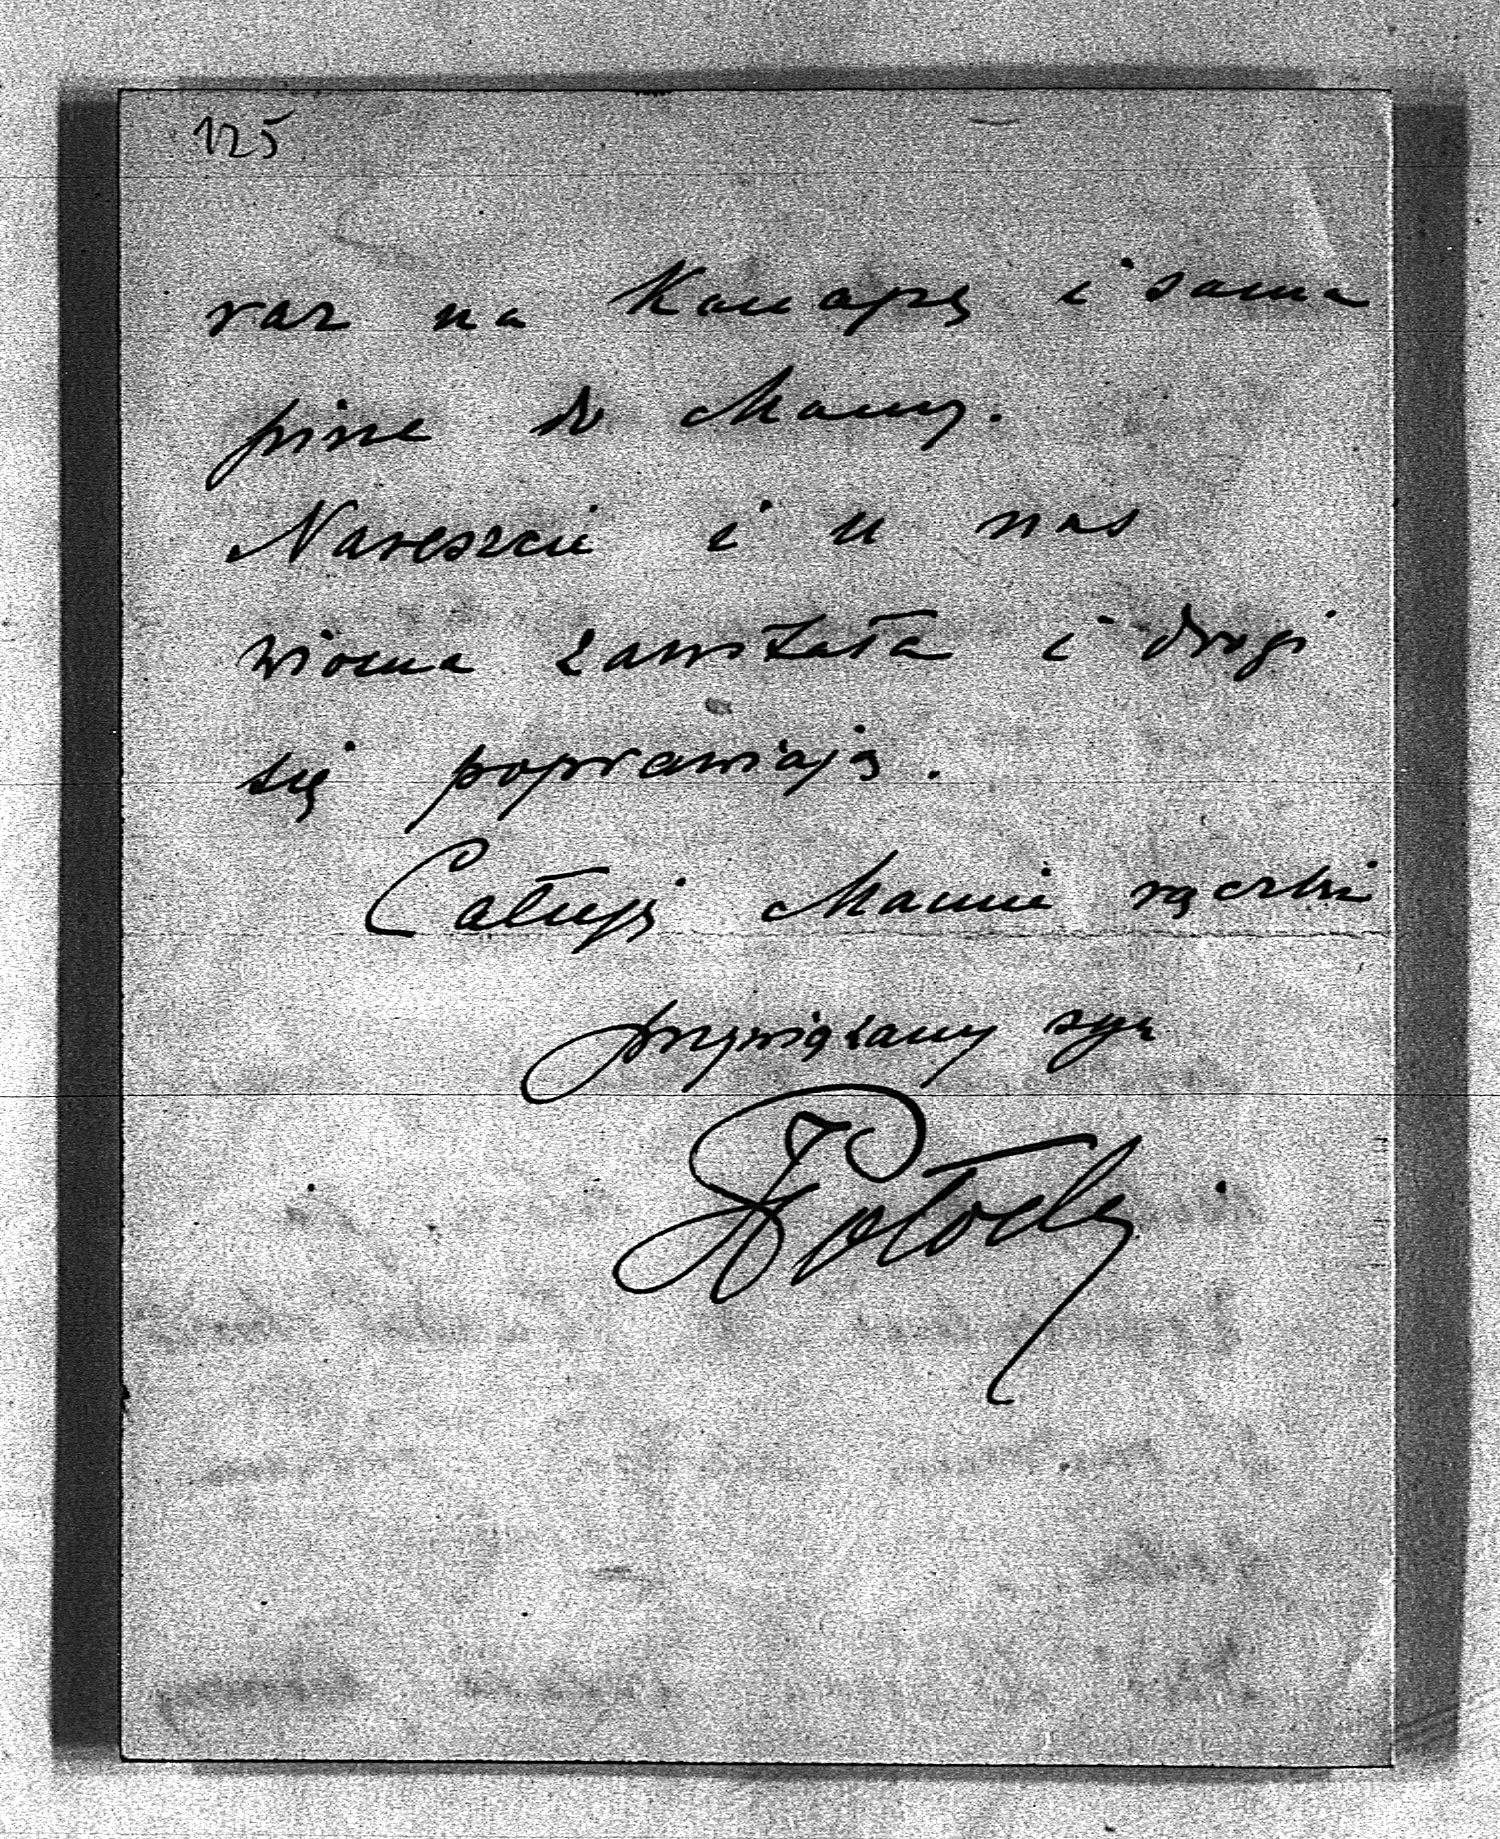 125
raz na kanapę i sama
pisze do Mamy.
Nareszcie i u nas
wiosna zawitała i drogi
się poprawiają.
Całuję Mamie rączki
przywiązany syn
Potocki